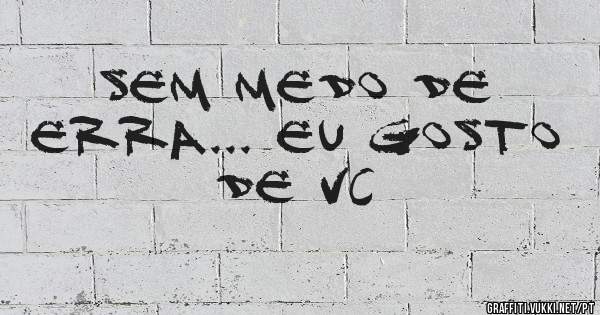 SEM MEDO DE
ERRA... EU GOSTO
DE VC
GRAFFITI.VUKKI.NET/PT